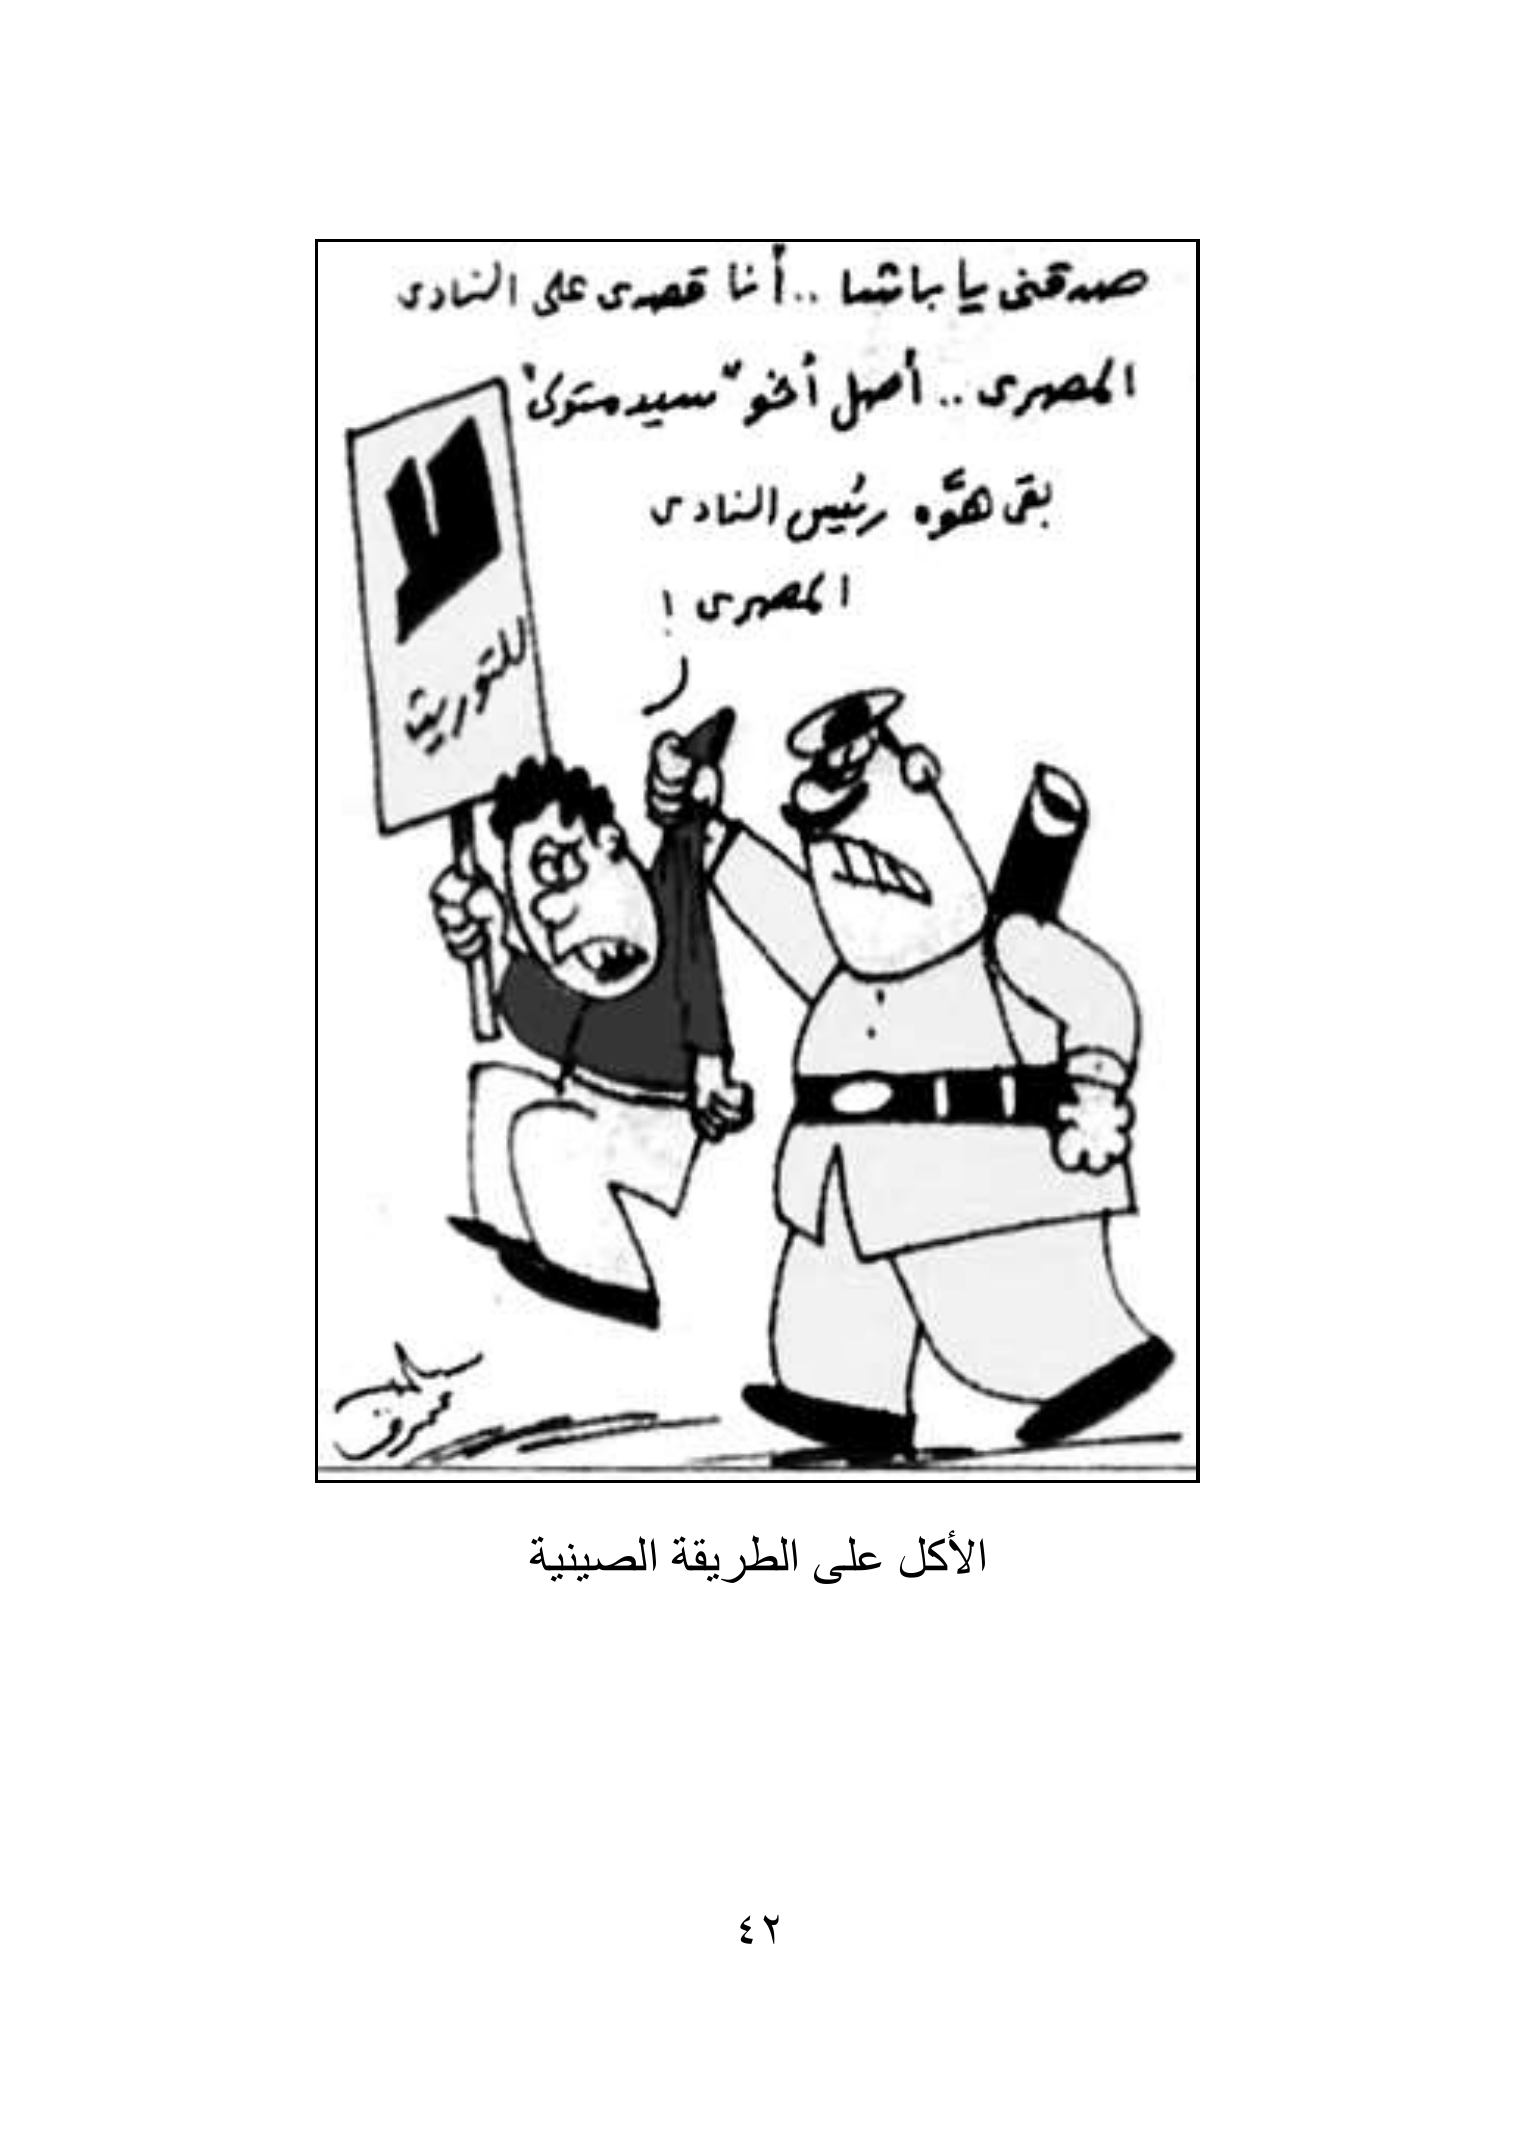 صدقنى يا باشا .. أنا قصدى على النادى
المصرى .. أصل أخو "سيد متولى"
بقى هوّه رئيس النادى
المصرى !
لا
للتوريث
الأكل على الطريقة الصينية
٤٢